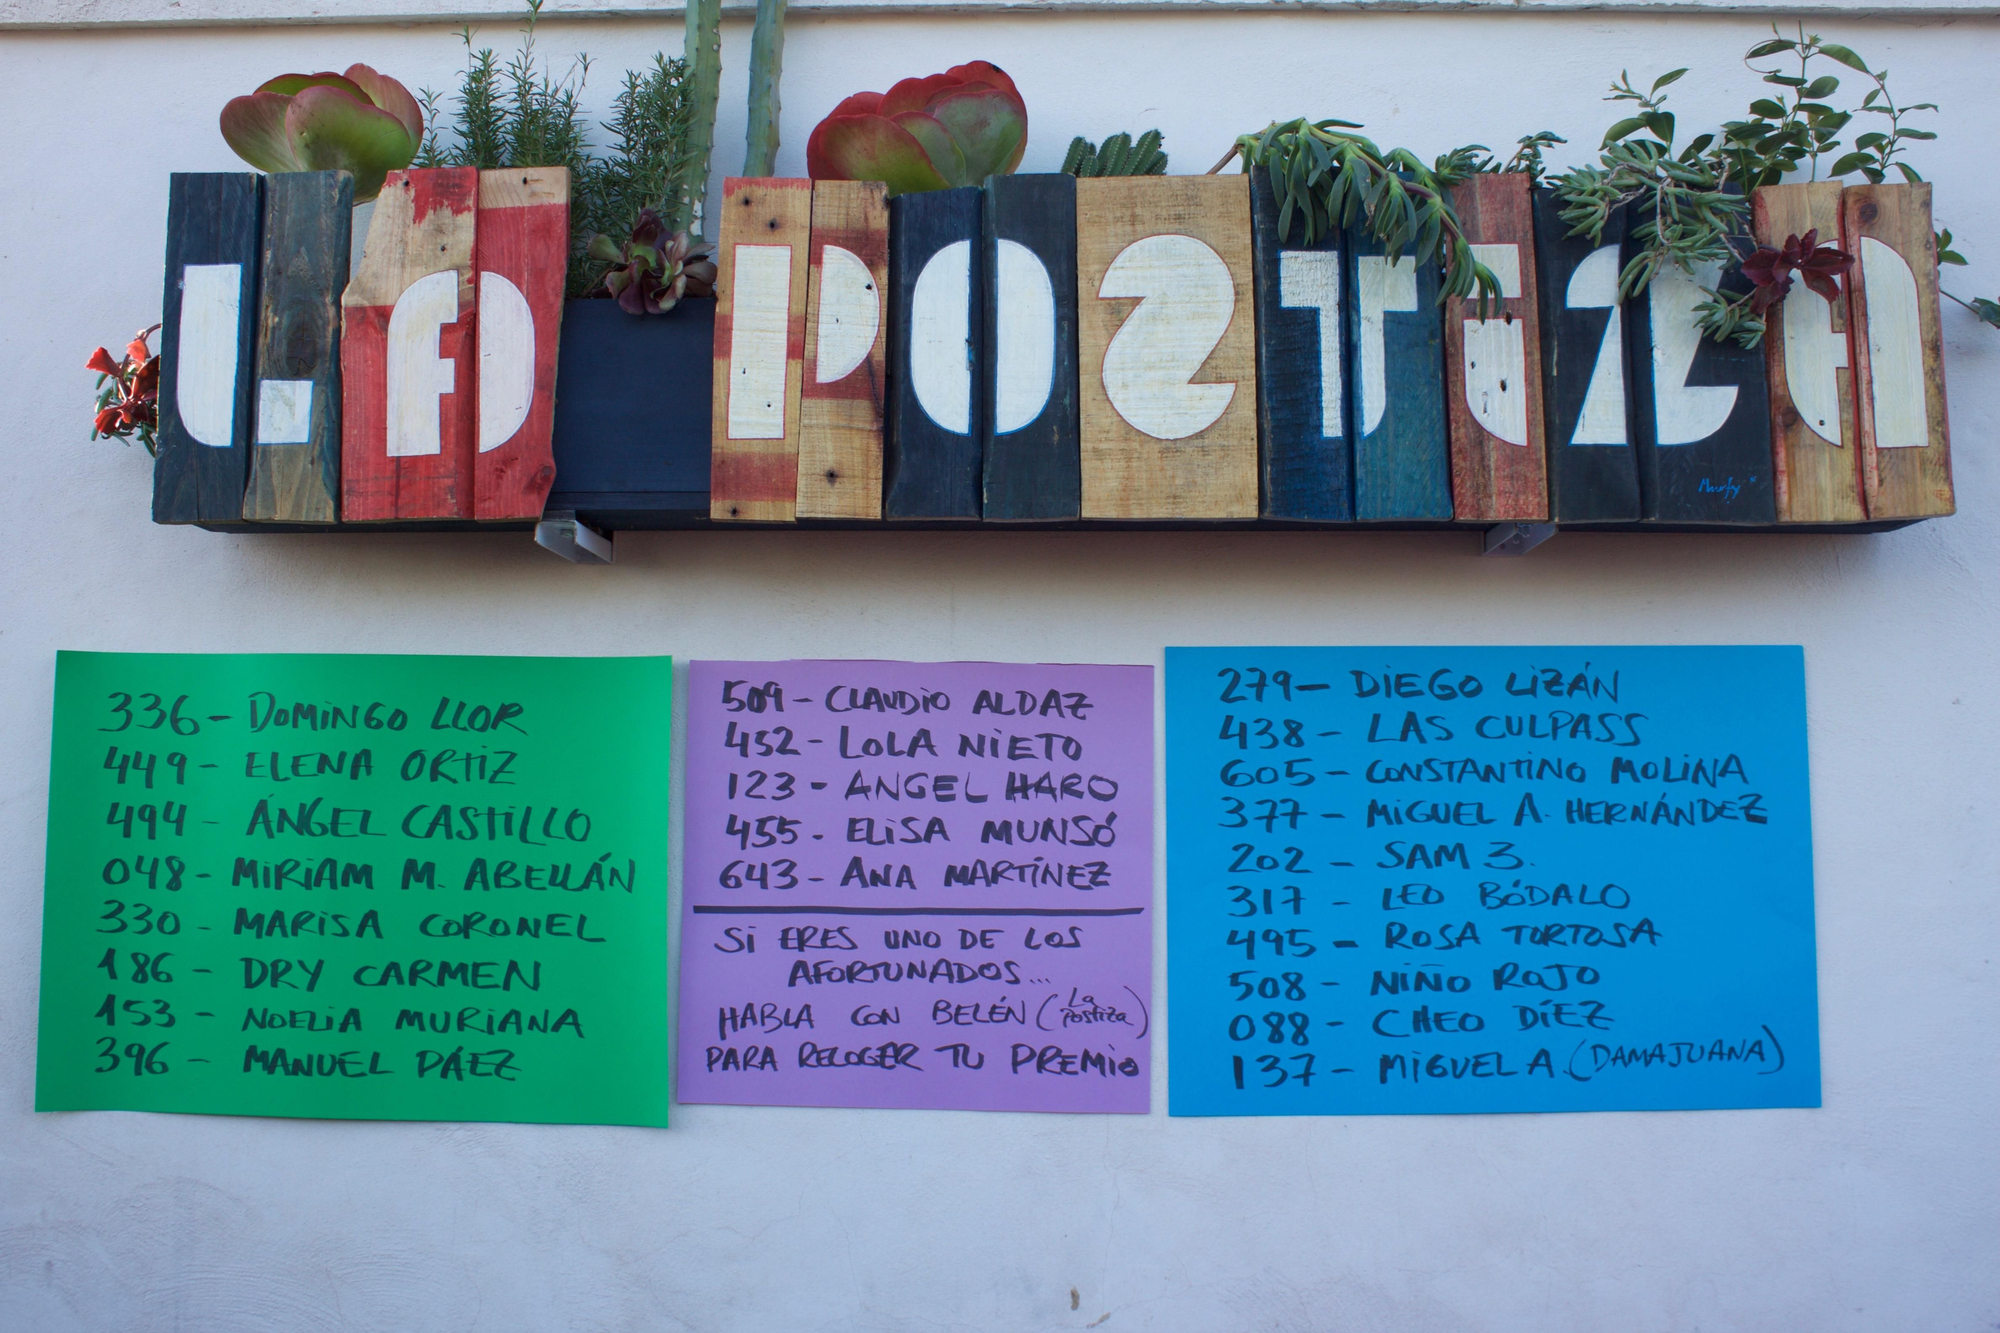 LA POSTiZA
Murfy
336 - DOMINGO LLOR
449 - ELENA ORTIZ
494 - ÁNGEL CASTILLO
048 - MIRIAM M. ABELLÁN
330 - MARISA CORONEL
186 - DRY CARMEN
153 - NOELIA MURIANA
396 - MANUEL PÁEZ
509 - CLAUDIO ALDAZ
452 - LOLA NIETO
123 - ANGEL HARO
455 - ELISA MUNSÓ
643 - ANA MARTÍNEZ
SI ERES UNO DE LOS
AFORTUNADOS...
HABLA CON BELÉN (La Postiza)
PARA RECOGER TU PREMIO
279 - DIEGO LIZÁN
438 - LAS CULPASS
605 - CONSTANTINO MOLINA
377 - MIGUEL A. HERNÁNDEZ
202 - SAM 3.
317 - LEO BÓDALO
495 - ROSA TORTOSA
508 - NIÑO ROJO
088 - CHEO DÍEZ
137 - MIGUEL A. (DAMAJUANA)